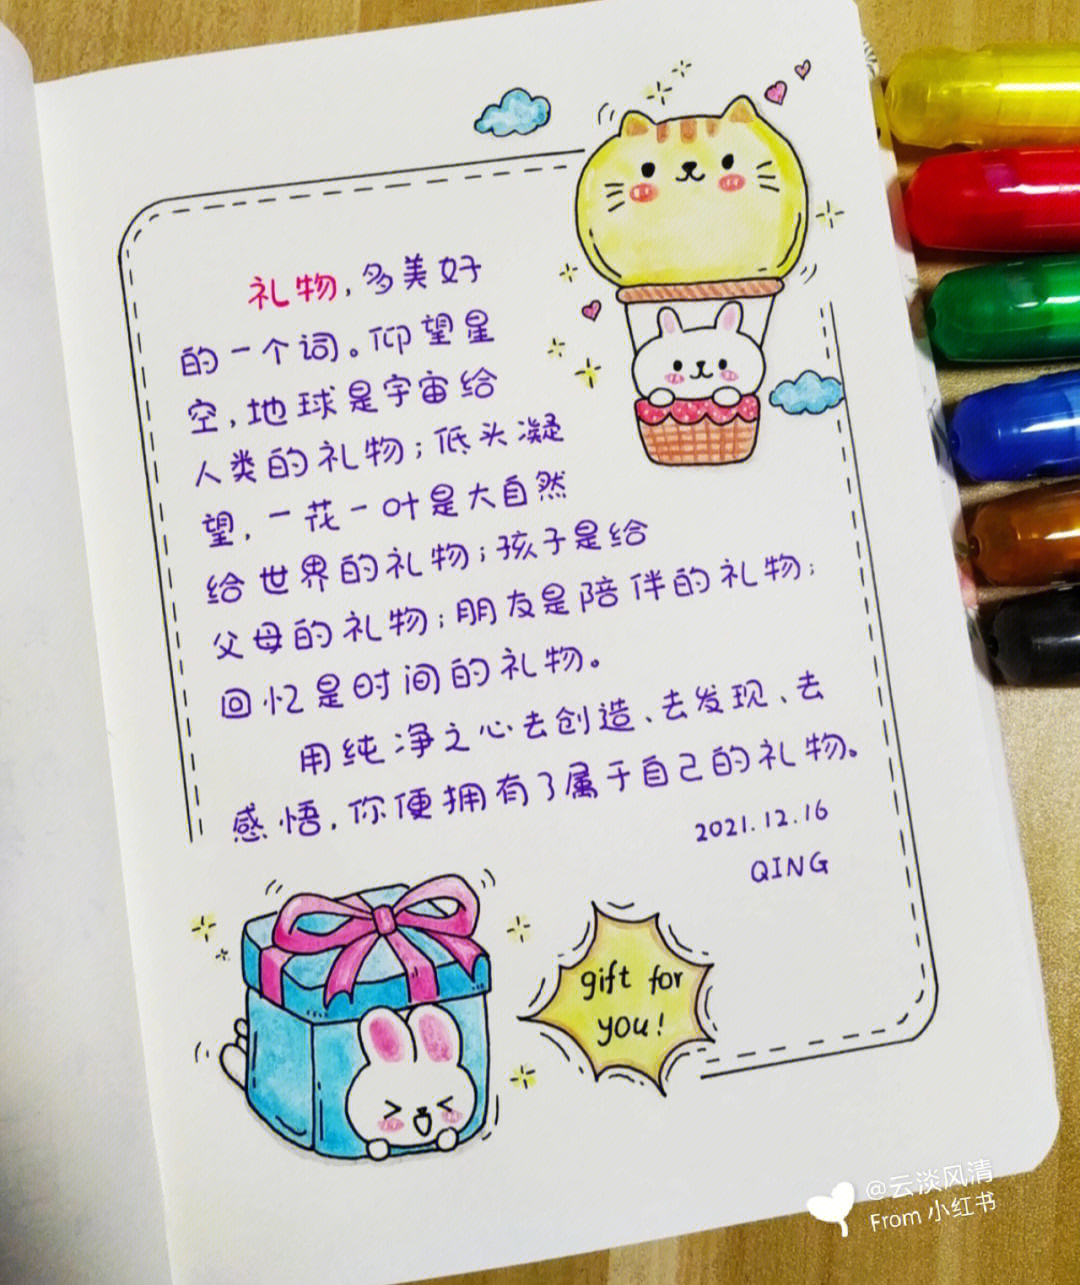 礼物，多美好
的一个词。仰望星
空，地球是宇宙给
人类的礼物；低头凝
望，一花一叶是大自然
给世界的礼物；孩子是给
父母的礼物；朋友是陪伴的礼物；
回忆是时间的礼物。
用纯净之心去创造、去发现、去
感悟，你便拥有了属于自己的礼物。
2021.12.16
QING
gift for
you!
@云淡风清
From 小红书